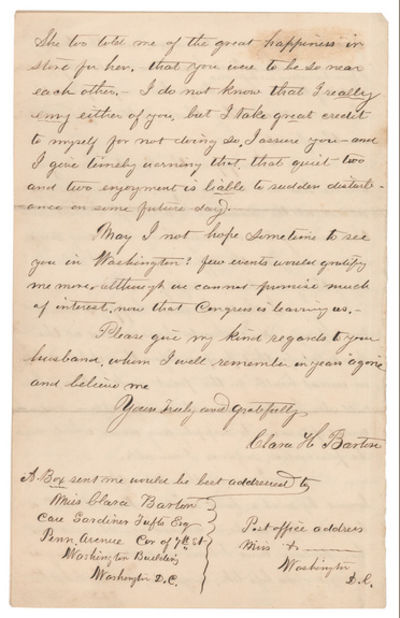 She too told me of the great happiness in
store for her, that you were to be so near
each other. - I do not know that I really
envy either of you, but I take great credit
to myself for not doing so, I assure you - and
I give timely warning that, that quiet two
and two enjoyment is liable to sudden disturb-
ance on some future day.
May I not hope sometime to see
you in Washington? few events would gratify
me more, although we cannot promise much
of interest, now that Congress is leaving us. -
Please give my kind regards to your
husband, whom I well remember in years agone
and believe me
Yours Truly and gratefully
Clara H Barton
A Box sent me would be best addressed to
Miss Clara Barton
Care Gardiner Tufts Esq
Penn. Avenue Cor of 7th St
Washington Building
Washington D.C.
Post office address
Miss
Washington
D.C.